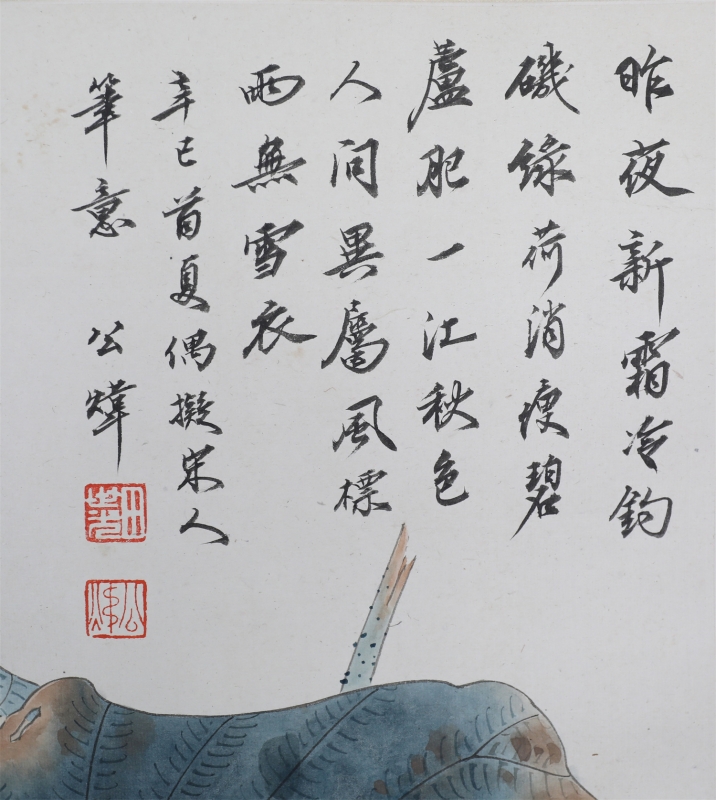 昨夜新霜冷釣
磯綠荷消瘦碧
蘆肥一江秋色
人問異屬風標
兩無雪衣
辛巳首夏偶擬宋人
筆意 公煒
田世光
公煒